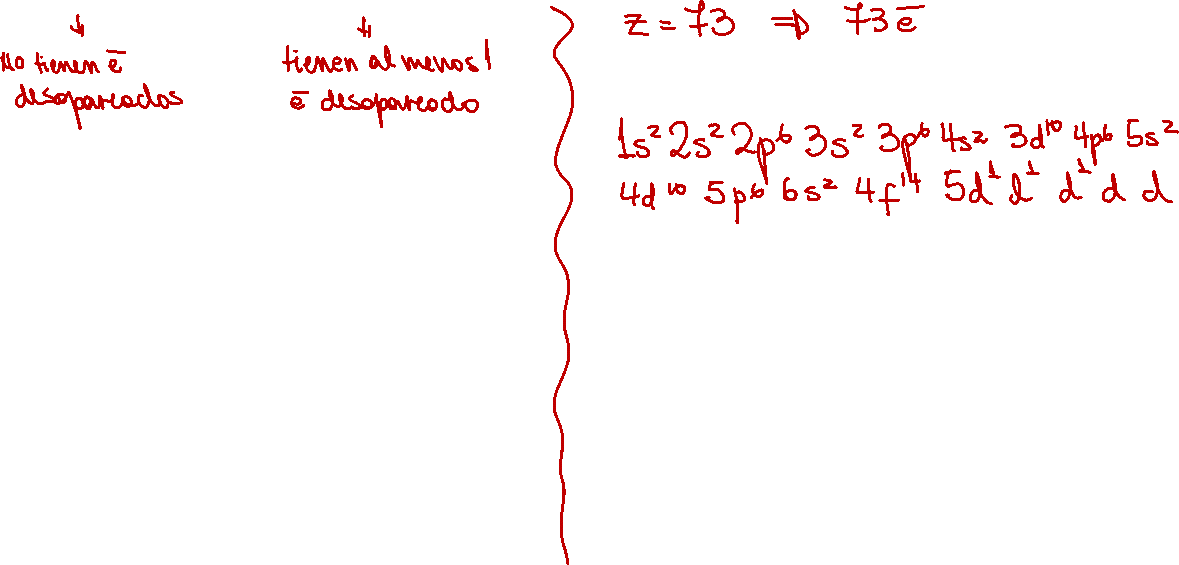 No tienen ē
desapareados
tienen al menos 1
ē desapareado
z = 73 ⇒ 73 ē
1s² 2s² 2p⁶ 3s² 3p⁶ 4s² 3d¹⁰ 4p⁶ 5s²
4d¹⁰ 5p⁶ 6s² 4f¹⁴ 5d¹ d¹ d¹ d d